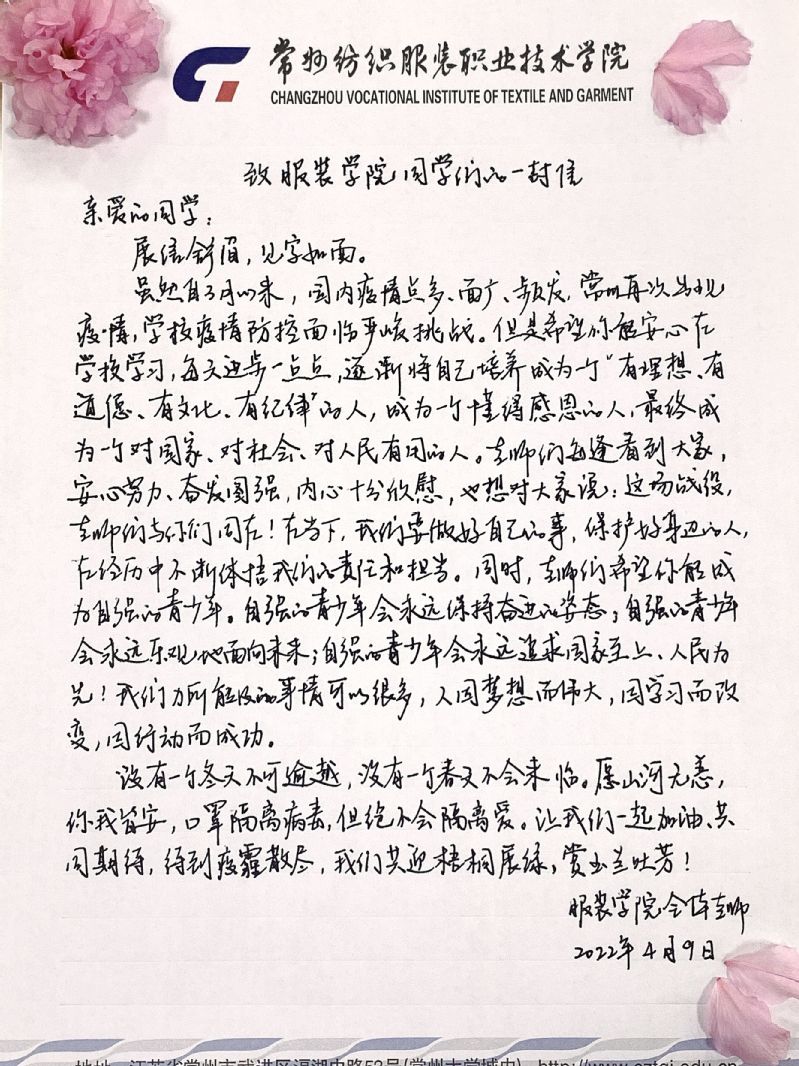 常州纺织服装职业技术学院
CHANGZHOU VOCATIONAL INSTITUTE OF TEXTILE AND GARMENT
致服装学院同学们的一封信
亲爱的同学:
展信舒眉,见字如面。
虽然自3月以来,国内疫情点多、面广、频发,常州再次出现
疫情,学校疫情防控面临严峻挑战。但是希望你能安心在
学校学习,每天进步一点点,逐渐将自己培养成为一个“有理想、有
道德、有文化、有纪律”的人,成为一个懂得感恩的人,最终成
为一个对国家、对社会、对人民有用的人。老师们每逢看到大家,
安心努力、奋发图强,内心十分欣慰,也想对大家说:这场战役,
老师们与你们同在!在当下,我们要做好自己的事,保护好身边的人,
在经历中不断体悟我们的责任和担当。同时,老师们希望你能成
为自强的青少年。自强的青少年会永远保持奋进的姿态;自强的青少年
会永远乐观地面向未来;自强的青少年会永远追求国家至上、人民为
先!我们力所能及的事情可以很多,人因梦想而伟大,因学习而改
变,因行动而成功。
没有一个冬天不可逾越,没有一个春天不会来临。愿山河无恙,
你我皆安,口罩隔离病毒,但绝不会隔离爱。让我们一起加油、共
同期待,待到疫霾散尽,我们共迎梧桐展绿,赏玉兰吐芳!
服装学院全体老师
2022年4月9日
地址:江苏省常州市武进区滆湖中路53号(常州大学城内) http://www.cztgi.edu.cn